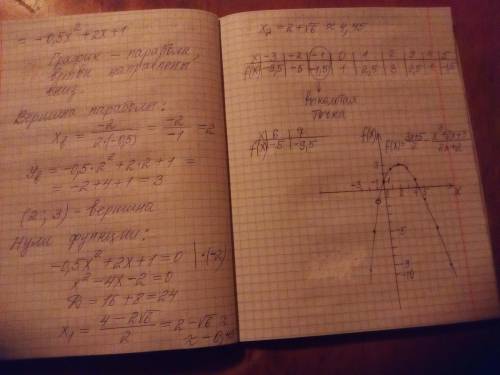 = -0,5x² + 2x + 1
График - парабола,
ветви направлены
вниз.
Вершина параболы:
x_в = -2 / 2·(-0,5) = -2 / -1 = 2
y_в = -0,5·2² + 2·2 + 1 =
= -2 + 4 + 1 = 3
(2; 3) - вершина
Нули функции:
-0,5x² + 2x + 1 = 0 | ·(-2)
x² - 4x - 2 = 0
D = 16 + 8 = 24
x₁ = 4 - 2√6 / 2 = 2 - √6 ≈
x₂ = 2 + √6 ≈ 4,45
x -3 -2 -1 0 1 2 3 4 5
f(x) -9,5 -5 -1,5 1 2,5 3 2,5 1 -1,5
выколотая
точка
x 6 7
f(x) -5 -9,5
f(x)
3
-3 -1
0
x
-5
-10